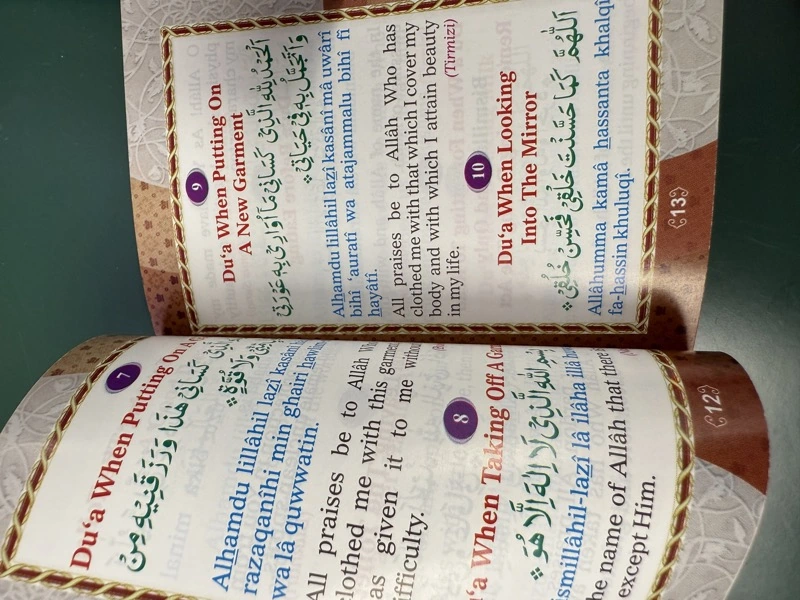 7
Du‘a When Putting On A
كَسَانِيْ هٰذَا وَرَزَقَنِيْهِ مِنْ
وَلَا قُوَّةٍ
Alhamdu lillâhil lazî kasânî
razaqanîhi min ghairi hawlin
wa lâ quwwatin.
All praises be to Allâh
clothed me with this
as given it to me
ifficulty.
8
‘a When Taking Off A
بِسْمِ اللهِ الَّذِيْ لَا إِلٰهَ إِلَّا هُوَ
ismillâhil-lazî lâ ilâha illâ
he name of Allâh that there
except Him.
12
9
Du‘a When Putting On
A New Garment
اَلْحَمْدُ لِلّٰهِ الَّذِيْ كَسَانِيْ مَا أُوَارِيْ بِهٖ عَوْرَتِيْ
وَأَتَجَمَّلُ بِهٖ فِيْ حَيَاتِيْ
Alhamdu lillâhil lazî kasânî mâ uwârî
bihî ‘auratî wa atajammalu bihî fî
hayâtî.
All praises be to Allâh Who has
clothed me with that which I cover my
body and with which I attain beauty
in my life. (Tirmizi)
10
Du‘a When Looking
Into The Mirror
اَللّٰهُمَّ كَمَا حَسَّنْتَ خَلْقِيْ فَحَسِّنْ خُلُقِيْ
Allâhumma kamâ hassanta khalqî
fa-hassin khuluqî.
13